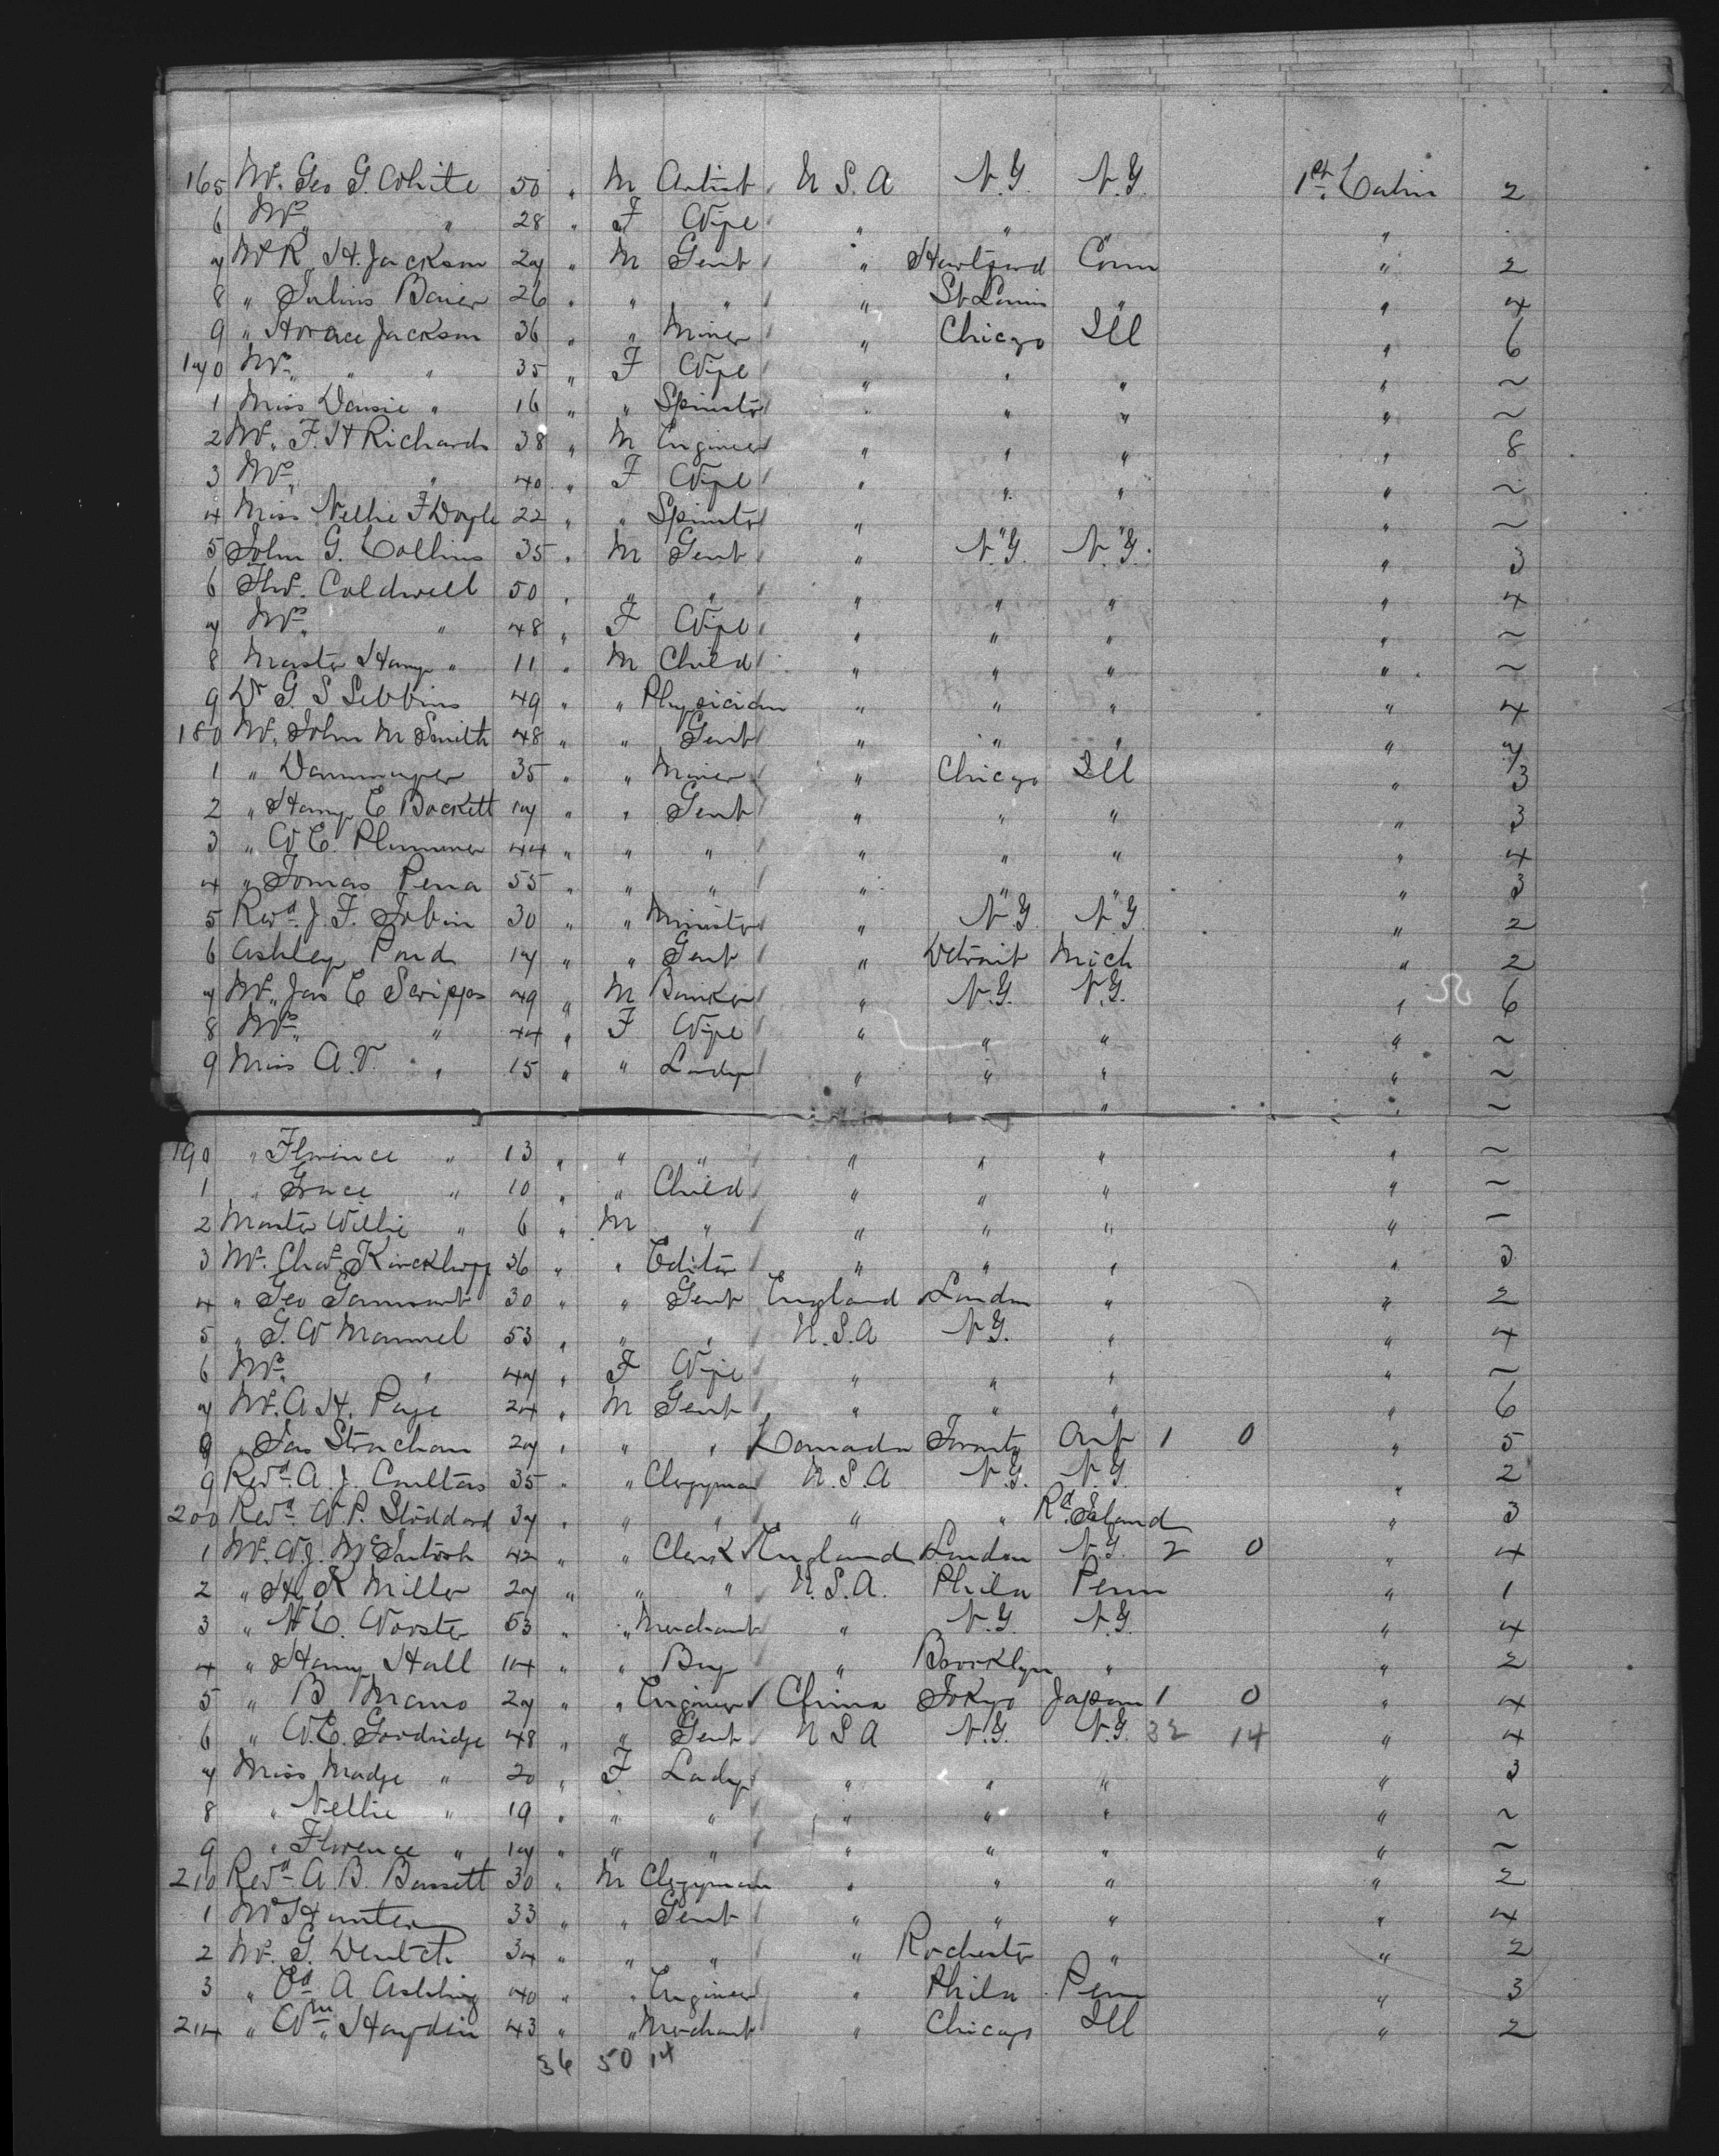 165 Mr. Geo G. White 50 " M Artist U.S.A N.Y. N.Y. 1st Cabin 2
6 Mrs " " 28 " F Wife " " " "
7 Mr R. H. Jackson 27 " M Gent " Hartford Conn " 2
8 " Julius Baier 26 " " " " St Louis " " 4
9 " Horace Jackson 36 " " Miner " Chicago Ill " 6
170 Mrs " " 35 " F Wife " " " " ~
1 Miss " 16 " " Spinster " " " " ~
2 Mr. F. H Richards 38 " M Engineer " " " " 8
3 Mrs " " 40 " F Wife " " " " ~
4 Miss Nellie F Doyle 22 " " Spinster " " ~
5 John G. Collins 35 " M Gent " N.Y. N.Y. " 3
6 Thos. Coldwell 50 " " " " " " " 4
7 Mrs " " 48 " F Wife " " " " ~
8 Master Harry " 11 " M Child " " " " ~
9 Dr G S 49 " " Physician " " " " 4
180 Mr. John M Smith 48 " " Gent " " " " 7
1 " 35 " " Miner " Chicago Ill " 3
2 " Harry E Bockett 17 " " Gent " " " " 3
3 " W E. Plummer 44 " " " " " " " 4
4 " Tomas Pena 55 " " " " " " " 3
5 Revd J. F. Tobin 30 " " Minister " N.Y. N.Y. " 2
6 Ashley Pond 17 " " Gent " Detroit Mich " 2
7 Mr. Jas E Scripps 49 " M Banker " N.Y. N.Y. " 6
8 Mrs " " 44 " F Wife " " " " ~
9 Miss A.V. " 15 " " Lady " " " " ~
" " ~
190 " Florence " 13 " " " " " " " ~
1 " Grace " 10 " " Child " " " " ~
2 Master Willie " 6 " M " " " " " ~
3 Mr. Chas. Kirckhoff 36 " " Editor " " " " 3
4 " Geo 30 " " Gent England London " " 2
5 " G. W Mammel 53 " " " U.S.A N.Y. " " 4
6 Mrs " 47 " F Wife " " " " ~
7 Mr. A. H. Page 24 " M Gent " " " " 6
8 " Jas Strachan 27 " " " Canada Toronto Ont 1 0 " 5
9 Revd A. J. Coultas 35 " " Clergyman U.S.A N.Y. N.Y. " 2
200 Revd W. P. Stoddard 37 " " " " " Rd Island " 3
1 Mr. W J. McIntosh 42 " " Clerk England London N.Y. 2 0 " 4
2 " H K Miller 27 " " " U.S.A. Phila Penn " 1
3 " W C. Vorster 53 " " Merchant " N.Y. N.Y. " 4
4 " Harry Hall 14 " " Boy " Brooklyn " " 2
5 " B Mano 27 " " Engineer China Tokyo Japan 1 0 " 4
6 " W. E. Goodridge 48 " " Gent U S A N.Y. N.Y. 32 14 " 4
7 Miss Madge " 20 " F Lady " " " " 3
8 " Nellie " 19 " " " " " " " ~
9 " Florence " 17 " " " " " " " ~
210 Revd A. B. Bassett 30 " M Clergyman " " " " 2
1 Mr Hunter 33 " " Gent " " " " 4
2 Mr. G. Dentch 34 " " " " Rochester " " 2
3 " Ed A 40 " " Engineer " Phila Penn " 3
214 " Wm Hayden 43 " " Merchant " Chicago Ill " 2
36 50 14